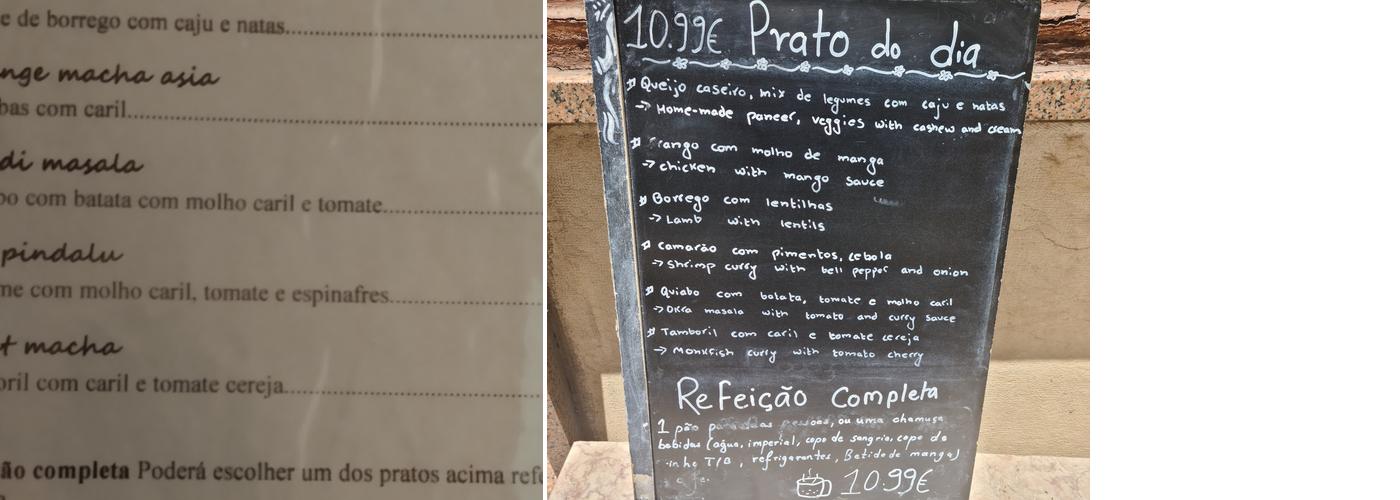 e de borrego com caju e natas
nge macha asia
bas com caril
di masala
bo com batata com molho caril e tomate
pindalu
me com molho caril, tomate e espinafres
t macha
oril com caril e tomate cereja
ão completa Poderá escolher um dos pratos acima refe
10.99€ Prato do dia
Queijo caseiro, mix de legumes com caju e natas
→ Home-made paneer, veggies with cashew and cream
rango com molho de manga
→ chicken with mango sauce
Borrego com lentilhas
→ Lamb with lentils
Camarão com pimentos, cebola
→ Shrimp curry with bell pepper and onion
Quiabo com batata, tomate e molho caril
→ Okra masala with tomato and curry sauce
Tamboril com caril e tomate cereja
→ Monkfish curry with tomato cherry
Refeição Completa
1 pão ou uma chamuça
bebidas (água, imperial, copo de sangria, copo de
inho T/B, refrigerantes, Batido de manga)
10.99€